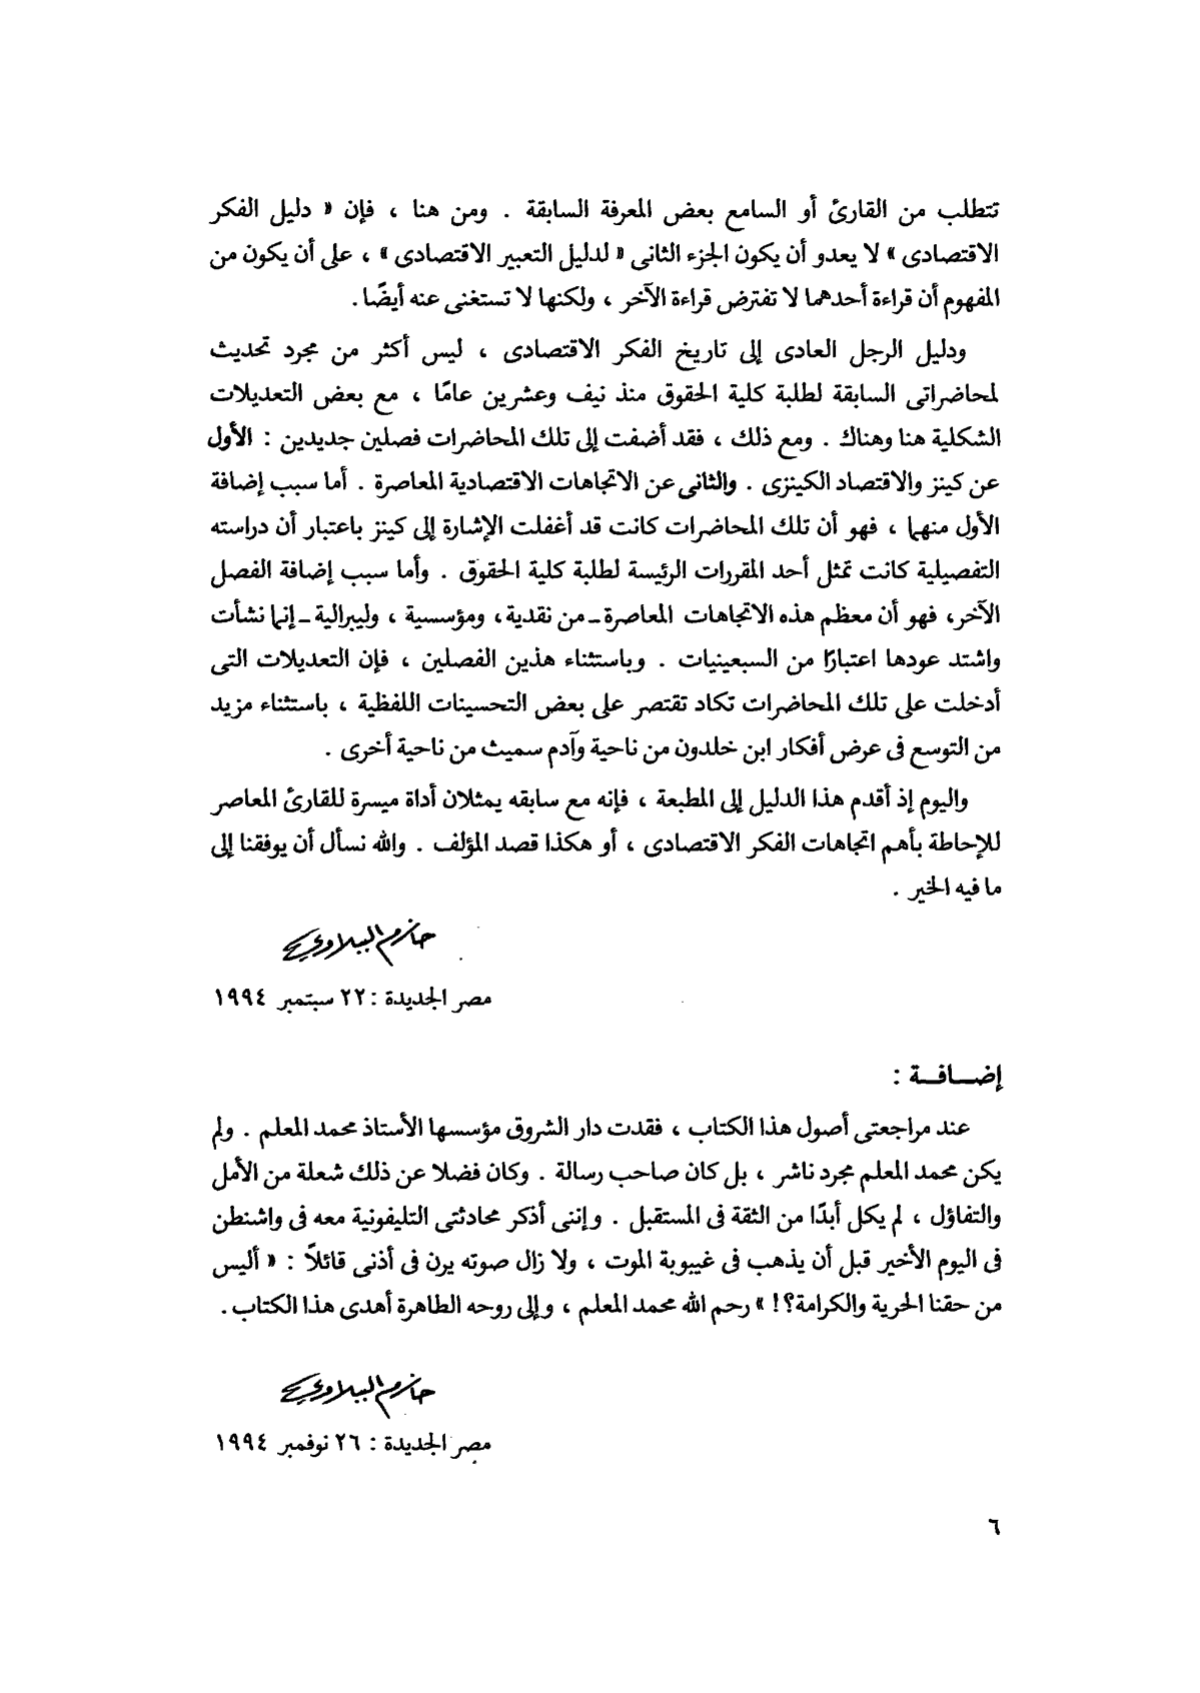 تتطلب من القارئ أو السامع بعض المعرفة السابقة . ومن هنا ، فإن « دليل الفكر
الاقتصادى » لا يعدو أن يكون الجزء الثانى « لدليل التعبير الاقتصادى » ، على أن يكون من
المفهوم أن قراءة أحدهما لا تفترض قراءة الآخر ، ولكنها لا تستغنى عنه أيضًا .
ودليل الرجل العادى إلى تاريخ الفكر الاقتصادى ، ليس أكثر من مجرد تحديث
لمحاضراتى السابقة لطلبة كلية الحقوق منذ نيف وعشرين عامًا ، مع بعض التعديلات
الشكلية هنا وهناك . ومع ذلك ، فقد أضفت إلى تلك المحاضرات فصلين جديدين : الأول
عن كينز والاقتصاد الكينزى . والثانى عن الاتجاهات الاقتصادية المعاصرة . أما سبب إضافة
الأول منهما ، فهو أن تلك المحاضرات كانت قد أغفلت الإشارة إلى كينز باعتبار أن دراسته
التفصيلية كانت تمثل أحد المقررات الرئيسة لطلبة كلية الحقوق . وأما سبب إضافة الفصل
الآخر، فهو أن معظم هذه الاتجاهات المعاصرة ـ من نقدية ، ومؤسسية ، وليبرالية ـ إنما نشأت
واشتد عودها اعتبارًا من السبعينيات . وباستثناء هذين الفصلين ، فإن التعديلات التى
أدخلت على تلك المحاضرات تكاد تقتصر على بعض التحسينات اللفظية ، باستثناء مزيد
من التوسع فى عرض أفكار ابن خلدون من ناحية وآدم سميث من ناحية أخرى .
واليوم إذ أقدم هذا الدليل إلى المطبعة ، فإنه مع سابقه يمثلان أداة ميسرة للقارئ المعاصر
للإحاطة بأهم اتجاهات الفكر الاقتصادى ، أو هكذا قصد المؤلف . والله نسأل أن يوفقنا إلى
ما فيه الخير .
حازم الببلاوي
مصر الجديدة : ٢٢ سبتمبر ١٩٩٤
إضـــافــة :
عند مراجعتى أصول هذا الكتاب ، فقدت دار الشروق مؤسسها الأستاذ محمد المعلم . ولم
يكن محمد المعلم مجرد ناشر ، بل كان صاحب رسالة . وكان فضلا عن ذلك شعلة من الأمل
والتفاؤل ، لم يكل أبدًا من الثقة فى المستقبل . وإننى أذكر محادثتى التليفونية معه فى واشنطن
فى اليوم الأخير قبل أن يذهب فى غيبوبة الموت ، ولا زال صوته يرن فى أذنى قائلاً : « أليس
من حقنا الحرية والكرامة؟! » رحم الله محمد المعلم ، وإلى روحه الطاهرة أهدى هذا الكتاب .
حازم الببلاوي
مصر الجديدة : ٢٦ نوفمبر ١٩٩٤
٦